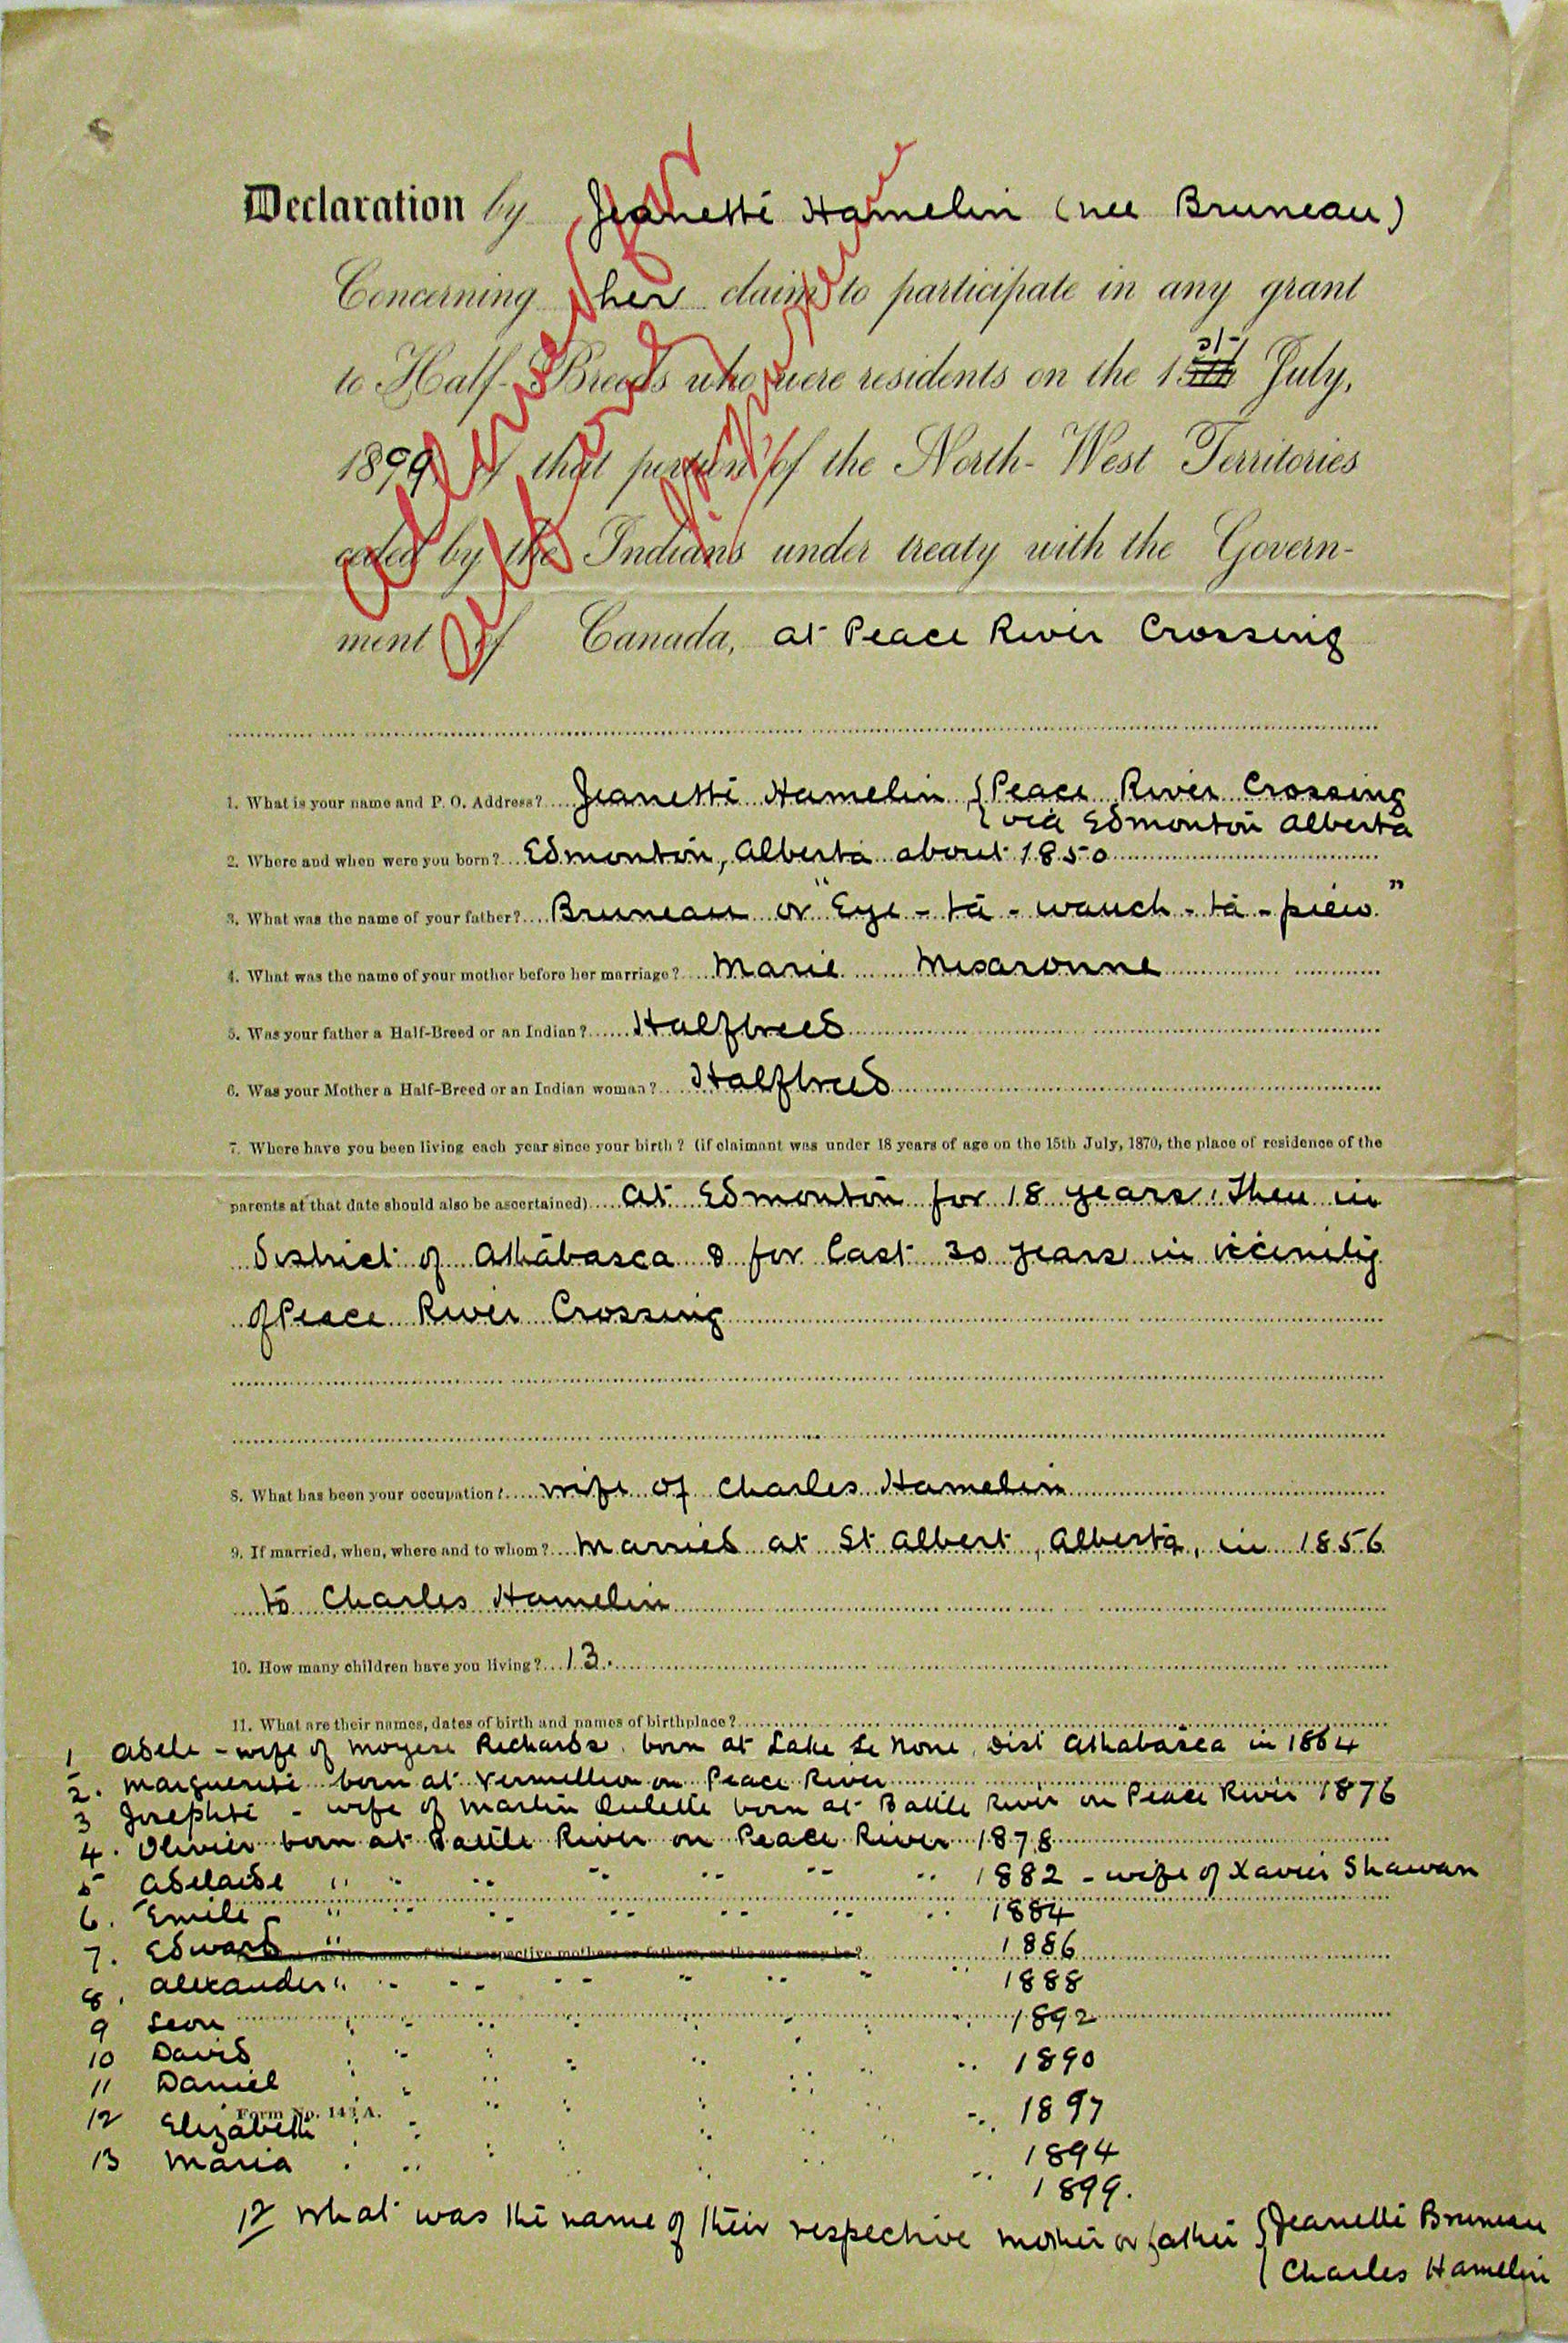 Declaration by Jeanette Hamelin (nee Bruneau)
Concerning her claim to participate in any grant
to Half-Breeds who were residents on the 1st July,
1899, of that portion of the North-West Territories
ceded by the Indians under treaty with the Govern-
ment of Canada, at Peace River Crossing
allowed for
self and
1. What is your name and P. O. Address? Jeanette Hamelin { Peace River Crossing
{ via Edmonton Alberta
2. Where and when were you born? Edmonton, Alberta about 1850
3. What was the name of your father? Bruneau or "Eye-ta-wauch-ta-piew"
4. What was the name of your mother before her marriage? Marie Misaronne
5. Was your father a Half-Breed or an Indian? Halfbreed
6. Was your Mother a Half-Breed or an Indian woman? Halfbreed
7. Where have you been living each year since your birth? (if claimant was under 18 years of age on the 15th July, 1870, the place of residence of the
parents at that date should also be ascertained) At Edmonton for 18 years, then in
District of Athabasca & for last 30 years in vicinity
of Peace River Crossing
8. What has been your occupation? wife of Charles Hamelin
9. If married, when, where and to whom? Married at St Albert, Alberta, in 1856
to Charles Hamelin
10. How many children have you living? 13.
11. What are their names, dates of birth and names of birthplace?
1 Adele - wife of Moyese Richards born at Lake Le None, Dist Athabasca in 1864
2. Marguerite born at Vermillion on Peace River
3 Josephte - wife of Martin Oulette born at Battle River on Peace River 1876
4. Olivier born at Battle River on Peace River 1878
5 Adelaide " " " " " " 1882 - wife of Xavier Shawan
6. Emile " " " " " " " 1884
7. Edward " 1886
was the name of their respective mothers or fathers, as the case may be?
8. Alexander " " " " " " " 1888
9 Leon " " " " " " " 1892
10 David " " " " " " " 1890
11 Daniel " " " " " " " 1897
Form No. 143 A.
12 Elizabeth " " " " " " " 1894
13 Maria " " " " " " " 1899.
12 What was the name of their respective mother or father { Jeanette Bruneau
{ Charles Hamelin